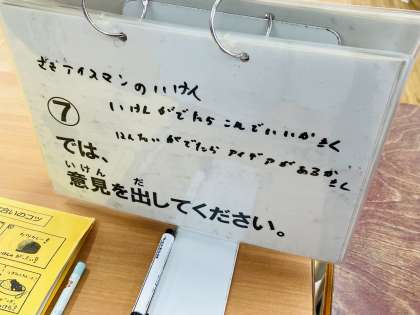 ぎぎテイスマンのいけん
いけんがでたら これでいいか きく
⑦
はんたいがでたら アイデアがあるか きく
では、
いけん だ
意見を出してください。
いのコツ